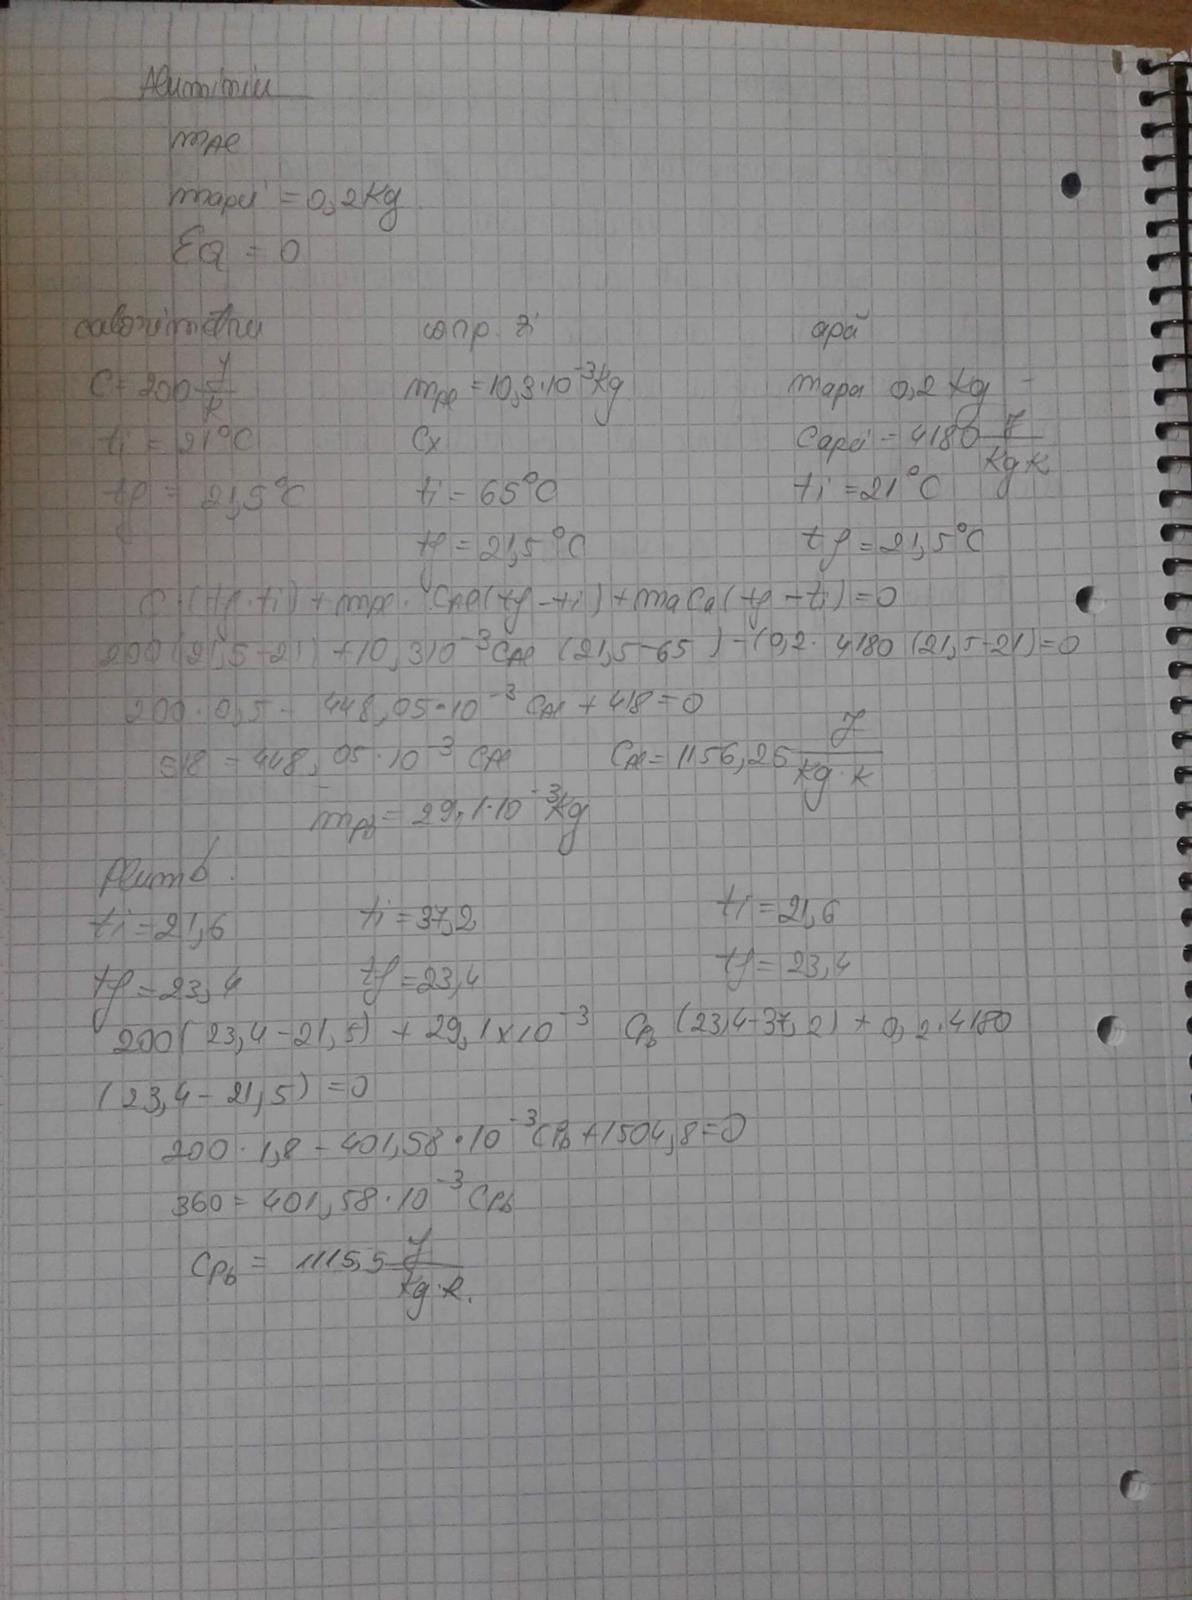 Aluminiu
mAl
mapă = 0,2 Kg
ΣQ = 0
calorimetru corp. ți apă
C = 200 J/K mAl = 10,3·10⁻³ Kg mapă 0,2 Kg
ti = 21°C Cx Capă = 4180 J/Kg·K
tf = 21,5°C ti = 65°C ti = 21°C
tf = 21,5°C tf = 21,5°C
C·(tf-ti) + mAl · CAl(tf-ti) + maCa(tf-ti) = 0
200(21,5-21) + 10,3 10⁻³ CAl (21,5-65) - (0,2 · 4180 (21,5-21) = 0
200·0,5 - 448,05·10⁻³ CAl + 418 = 0
518 = 448,05·10⁻³ CAl CAl = 1156,25 J/kg·K
mPb = 29,1·10⁻³ Kg
Plumb.
ti = 21,6 ti = 37,2 ti = 21,6
tf = 23,4 tf = 23,4 tf = 23,4
200(23,4-21,5) + 29,1×10⁻³ CPb (23,4-37,2) + 0,2·4180
(23,4-21,5) = 0
200·1,8 - 401,58·10⁻³ CPb + 1504,8 = 0
360 = 401,58·10⁻³ CPb
CPb = 1115,5 J/kg·K.